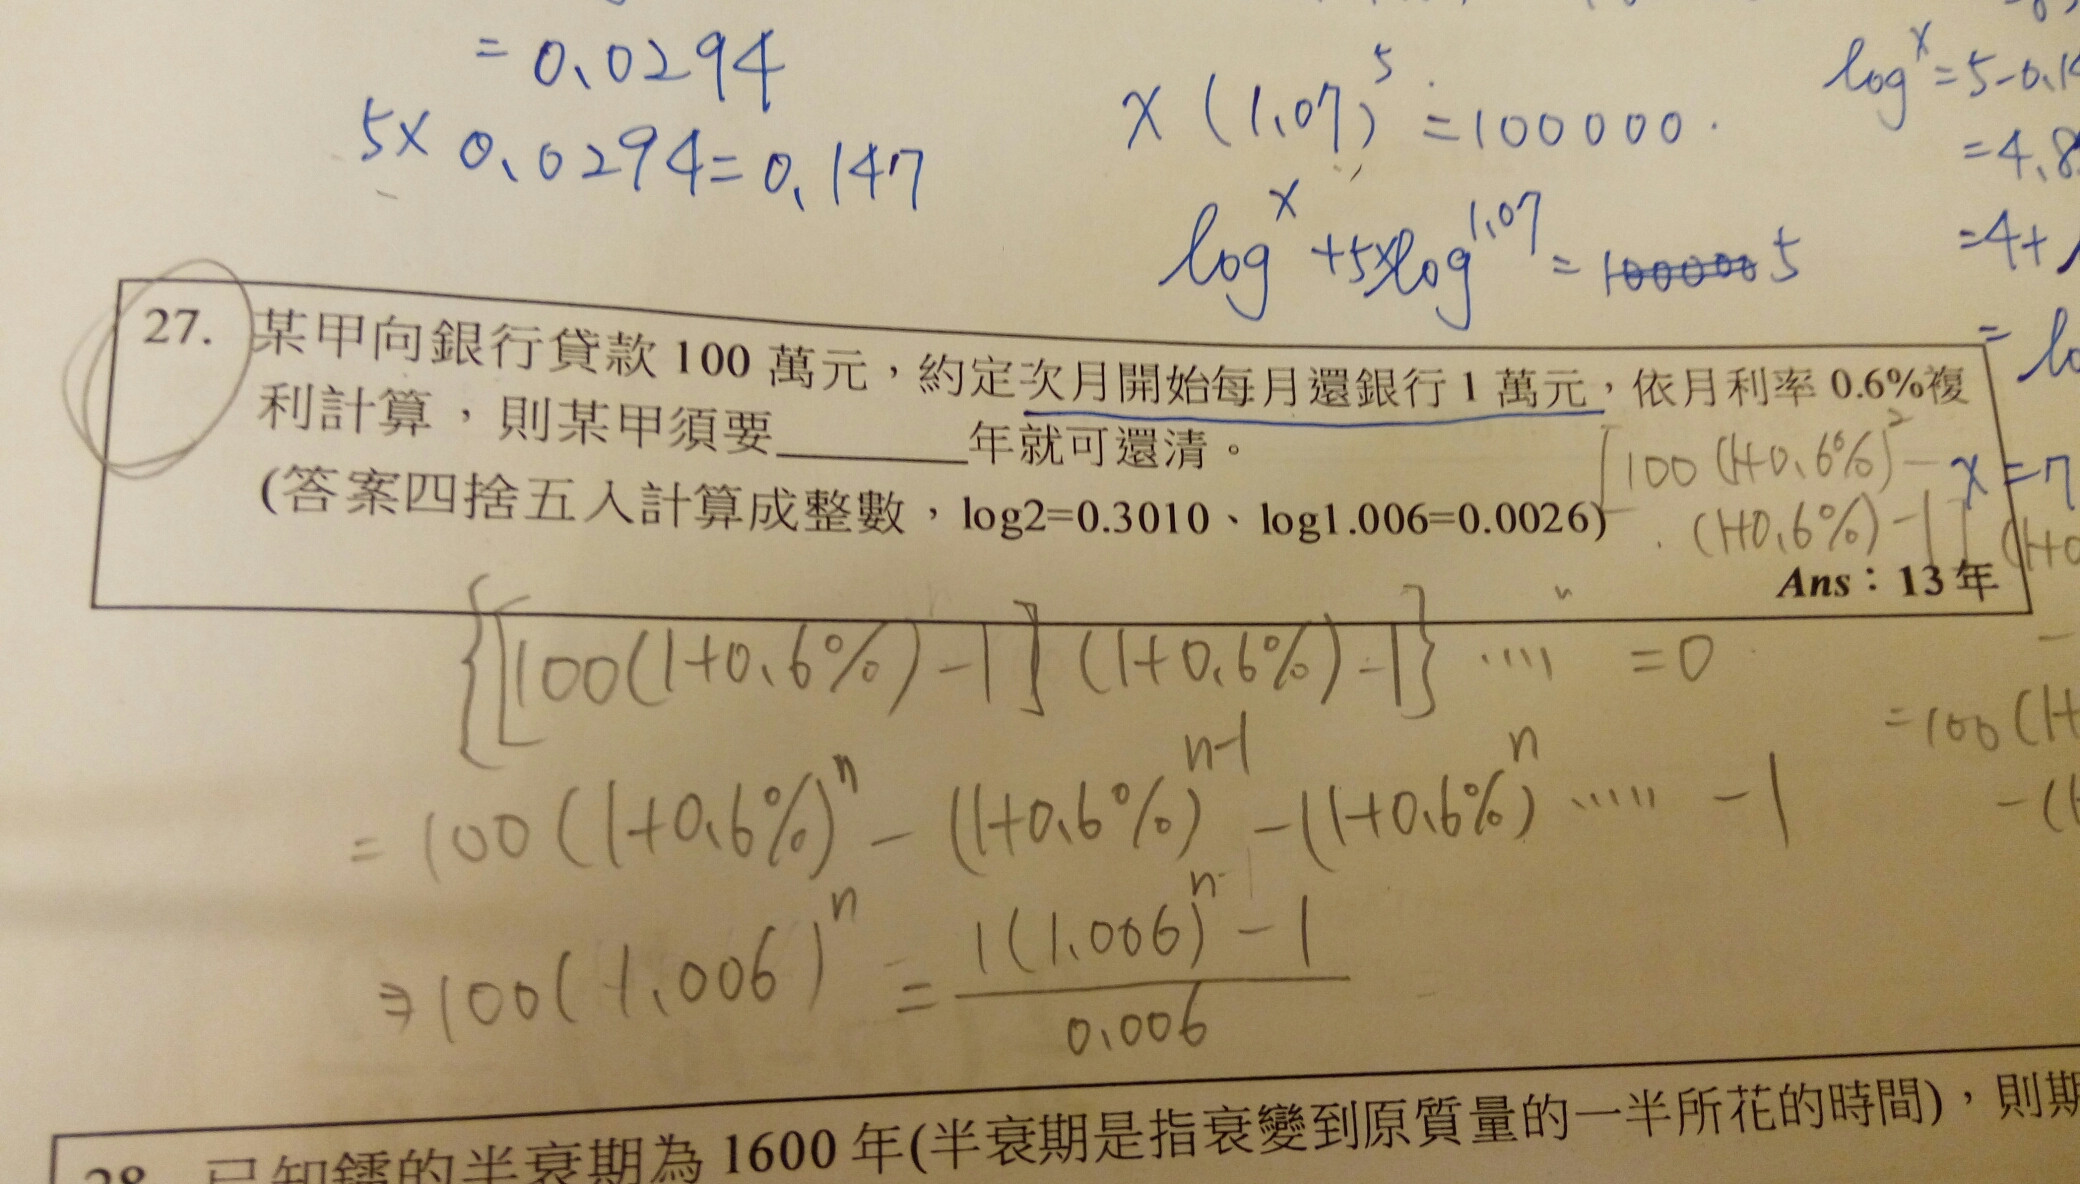 = 0.0294
5× 0.0294=0.147
x (1.07)^5 = 100000.
log^x + 5×log^1.07 = 5
log^x = 5-0.1
= 4.8
= 4+
= lo
x = 7
27. 某甲向銀行貸款 100 萬元，約定次月開始每月還銀行 1 萬元，依月利率 0.6%複
利計算，則某甲須要______年就可還清。
(答案四捨五入計算成整數，log2=0.3010、log1.006=0.0026)
Ans：13 年
[100 (1+0.6%)^2 -
(1+0.6%) -1] (1+0
{[100(1+0.6%)-1] (1+0.6%)-1} ..... =0
= 100 (1+0.6%)^n - (1+0.6%)^n-1 - (1+0.6%)^n ...... -1
=100 (1+
-(1
⇒ 100 (1.006)^n = 1(1.006)^n - 1 / 0.006
28. 已知鐳的半衰期為 1600 年(半衰期是指衰變到原質量的一半所花的時間)，則期